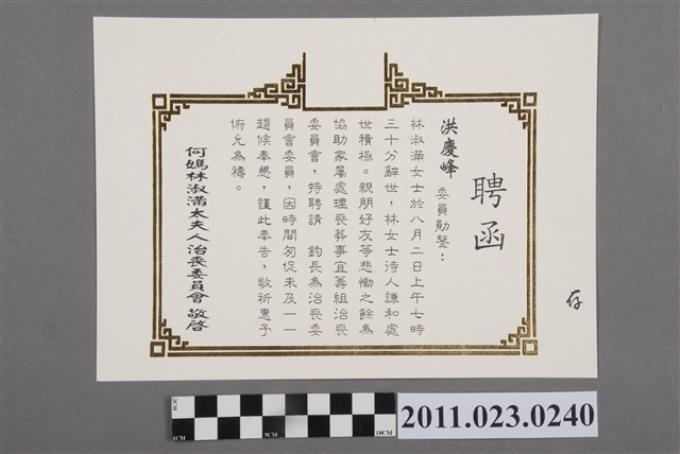 聘函
洪慶峰 委員勛鑒：
林淑滿女士於八月二日上午七時
三十分辭世，林女士待人謙和處
世積極。親朋好友等悲慟之餘為
協助家屬處理喪葬事宜籌組治喪
委員會，特聘請 鈞長為治喪委
員會委員，因時間匆促未及一一
趨候奉懇，謹此奉告，敬祈惠予
俯允為禱。
何媽林淑滿太夫人治喪委員會 敬啓
存
2CM
1CM
5CM
10CM
2011.023.0240